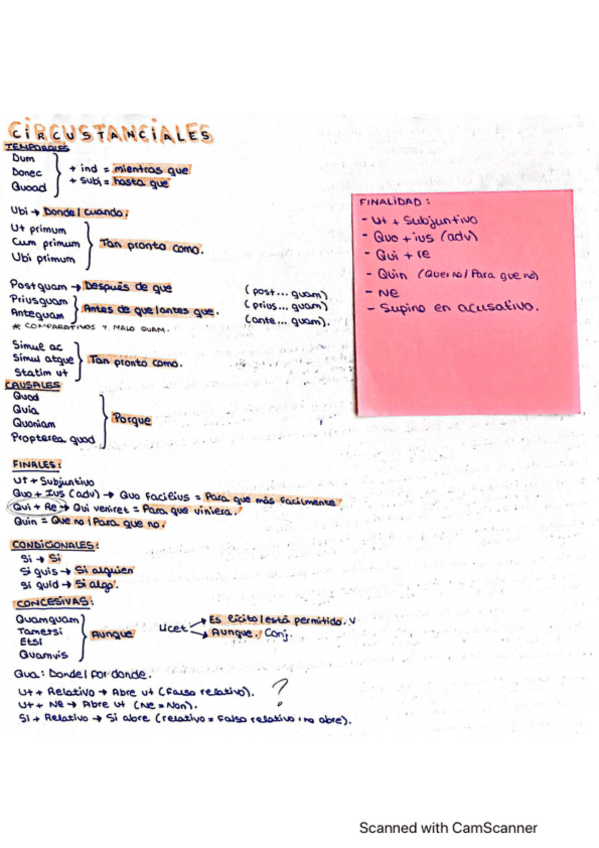 CIRCUSTANCIALES
TEMPORALES
Dum
Donec
Quoad
+ ind = mientras que
+ subj = hasta que
Ubi → Donde / cuando,
Ut primum
Cum primum
Ubi primum
Tan pronto como.
Postquam → Después de que (post... quam)
Priusquam (prius... quam)
Antequam (ante... quam).
Antes de que/antes que.
* COMPARATIVOS Y MALO QUAM.
Simul ac
Simul atque
Statim ut
Tan pronto como.
CAUSALES
Quod
Quia
Quoniam
Propterea quod
Porque
FINALES:
Ut + Subjuntivo
Quo + Ius (adv) → Quo facilius = Para que más facilmente
Qui + Re → Qui veniret = Para que viniera.
Quin = Que no / Para que no.
CONDICIONALES:
Si → Si
Si quis → Si alguien
Si quid → Si algo.
CONCESIVAS:
Quamquam
Tamersi
Etsi
Quamvis
Aunque
Licet
→ Es lícito / está permitido. V
→ Aunque. / Conj.
Qua: Donde / por donde.
Ut + Relativo → Abre ut (falso relativo). ?
Ut + Ne → Abre ut (Ne = Non).
Si + Relativo → Si abre (relativo = falso relativo : no abre).
FINALIDAD:
- Ut + Subjuntivo
- Quo + ius (adv)
- Qui + re
- Quin (Que no / Para que no)
- Ne
- Supino en acusativo.
Scanned with CamScanner